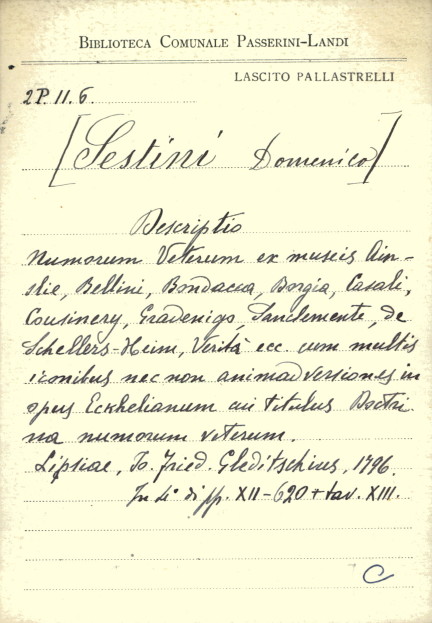 BIBLIOTECA COMUNALE PASSERINI-LANDI
LASCITO PALLASTRELLI
2P. 11. 6.
[Sestini Domenico]
Descriptio
Numorum Veterum ex museis Ain-
slie, Bellini, Bondacca, Borgia, Casali,
Cousinery, Gradenigo, Sanclemente, de
Schellers-Heim, Verità ecc. cum multis
iconibus nec non animadversiones in
opus Eckhelianum cui titulus Doctri
na numorum veterum.
Lipsiae, Jo. Fried. Gleditschius, 1796.
In 4° di pp. XII-620 + tav. XIII.
C